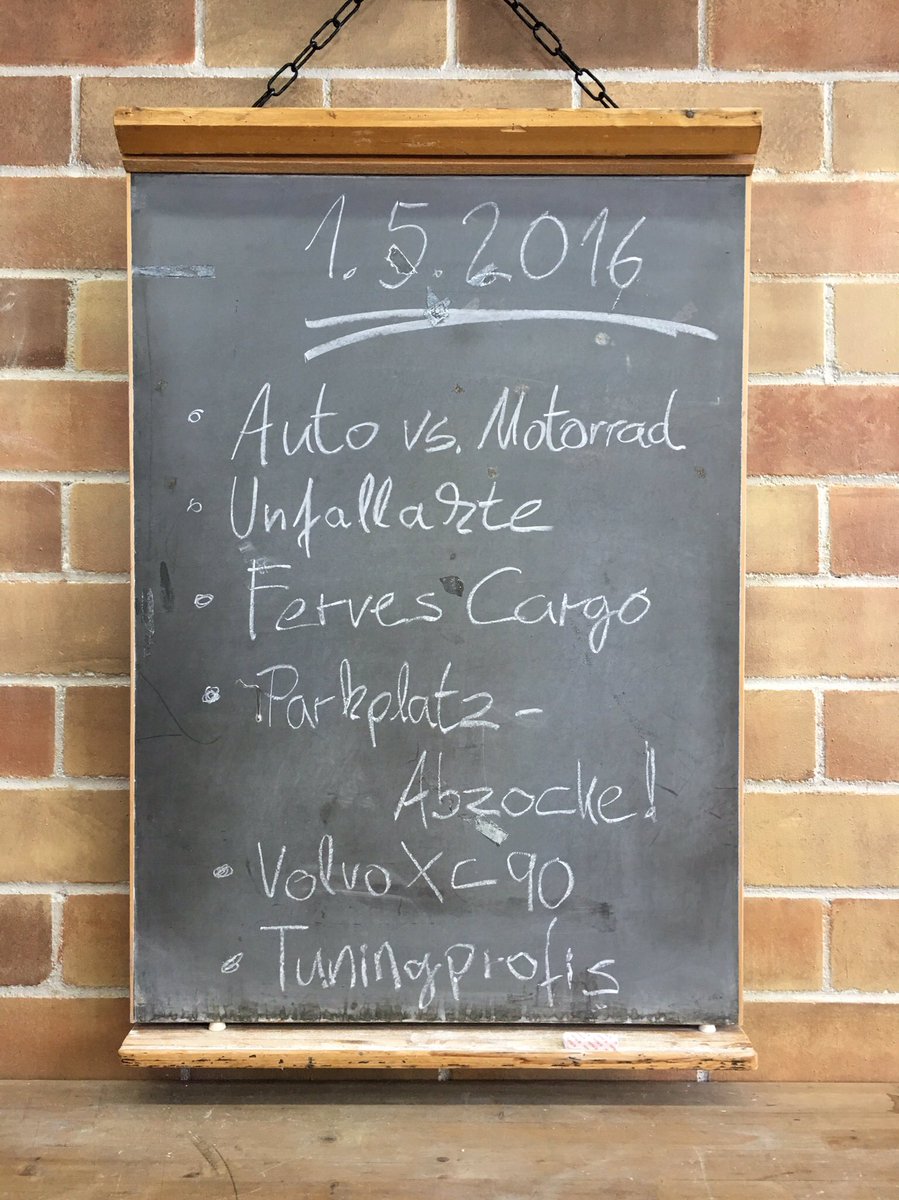 1.5.2016
Auto vs. Motorrad
Unfallärzte
Ferves Cargo
Parkplatz-
Abzocke!
Volvo XC 90
Tuningprofis